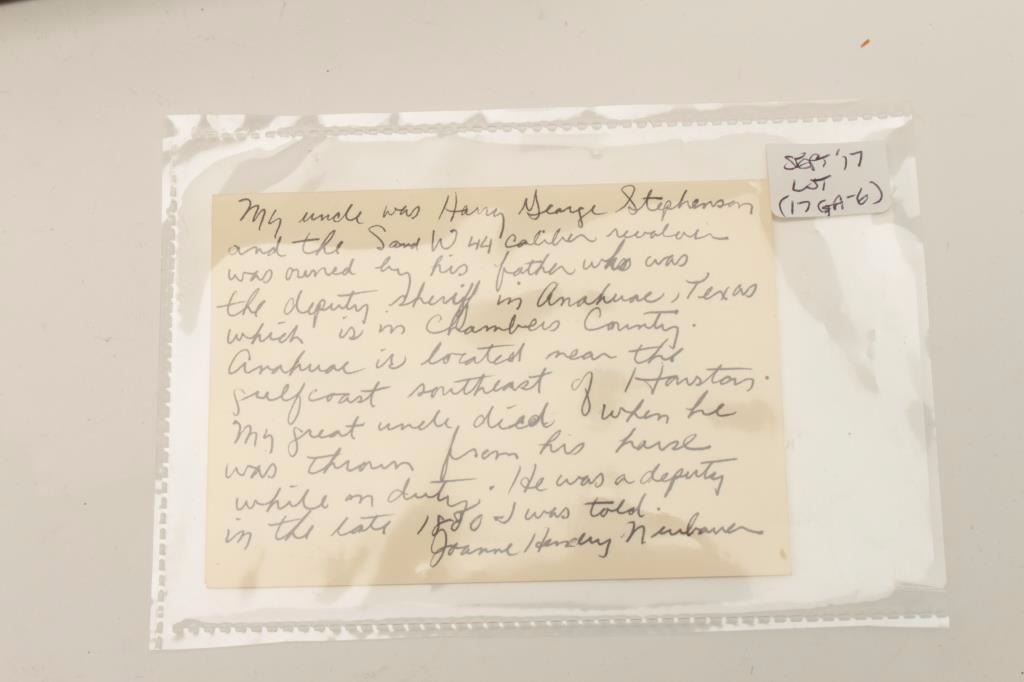 My uncle was Harry George Stephenson
and the S and W 44 caliber revolver
was owned by his father who was
the deputy sheriff in Anahuac, Texas
which is in Chambers County.
Anahuac is located near the
gulfcoast southeast of Houston.
My great uncle died when he
was thrown from his horse
while on duty. He was a deputy
in the late 1880 I was told.
Joanne Neubauer
SEPT '17
(17GA-6)